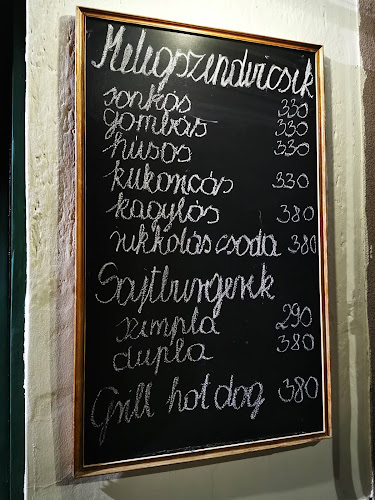 Melegszendvicsek
sonkás 330
gombás 330
húsos 330
kukoricás 330
kagylós 380
nikkolás csoda 380
Sajtburgerek
szimpla 290
dupla 380
Grill hot dog 380